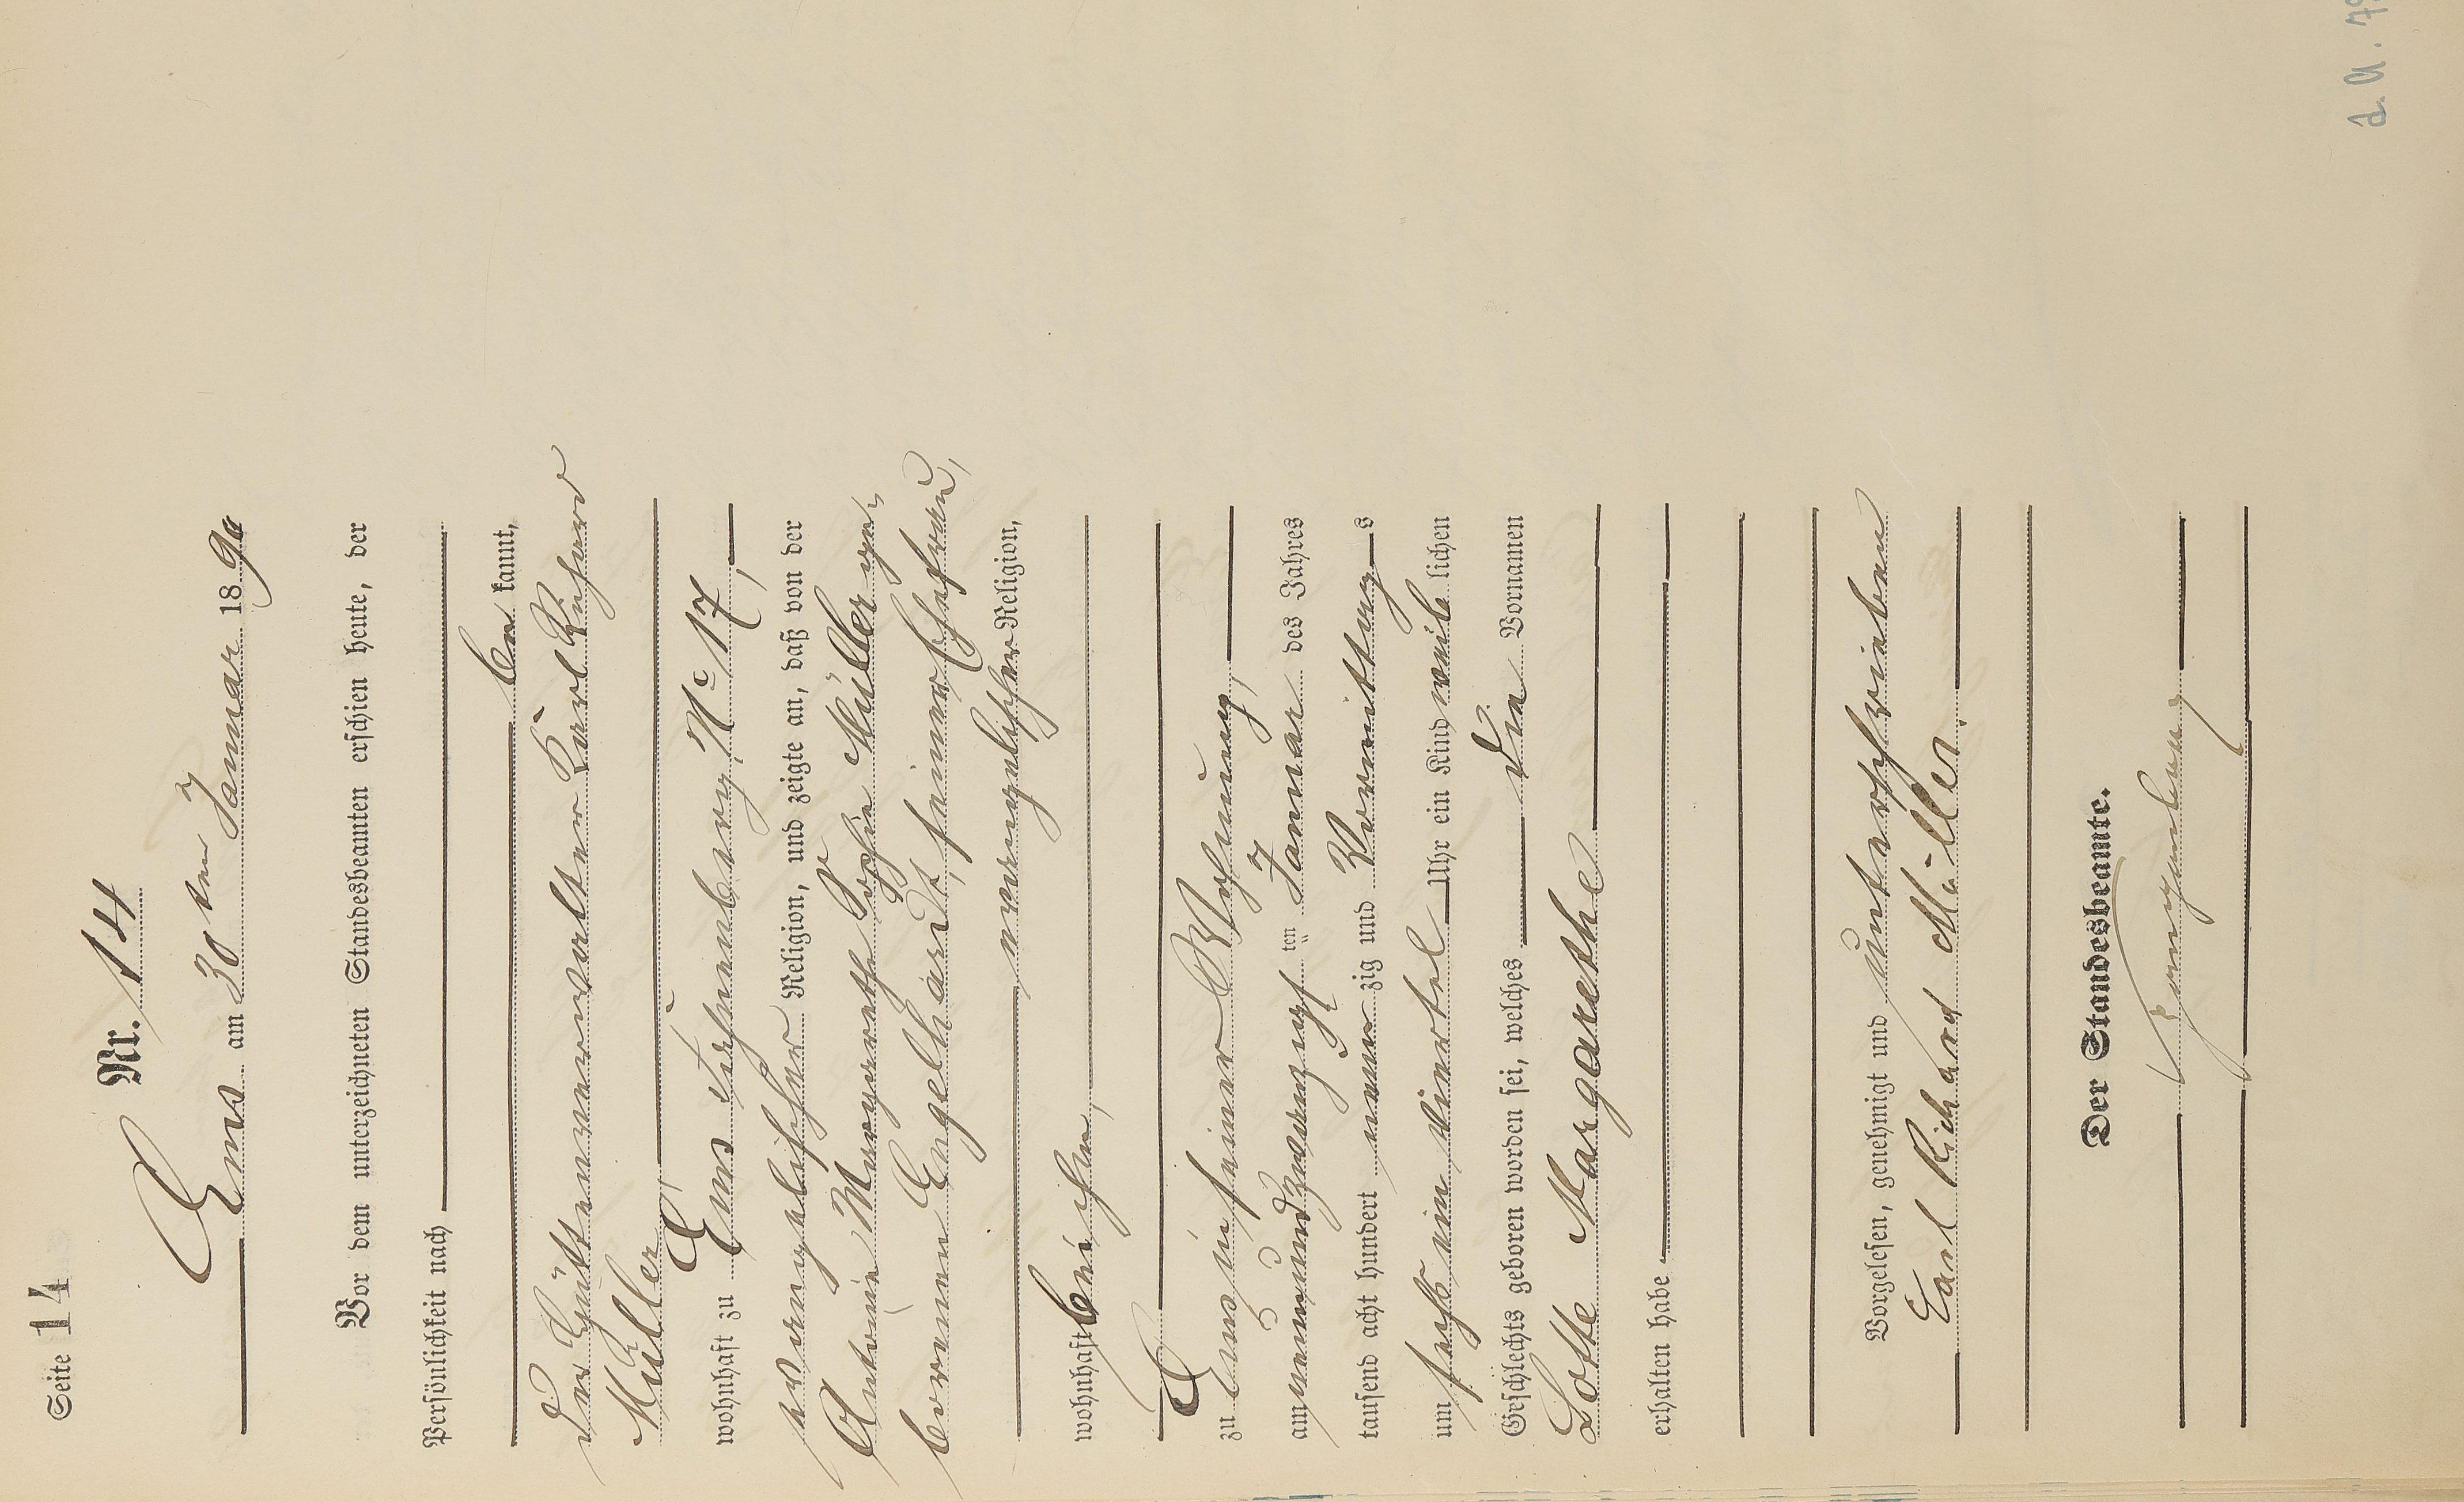 Seite 14
Nr. 14
Ems am 30ten Januar 1890
Vor dem unterzeichneten Standesbeamten erschien heute, der
Persönlichkeit nach
be kannt,
der Hüttenverwalter Karl Richard
Müller,
wohnhaft zu Ems No 17,
evangelischer Religion, und zeigte an, daß von der
Margarethe Sophie Müller ge-
borenen Engelhardt, seiner Ehefrau,
evangelischer Religion,
wohnhaft bei ihm,
zu Ems in seiner Wohnung,
am neunundzwanzigsten Januar des Jahres
tausend acht hundert neun zig und Vormittags
um sechs ein viertel Uhr ein Kind weib lichen
Geschlechts geboren worden sei, welches die Vornamen
Lotte Margarethe
erhalten habe
Vorgelesen, genehmigt und unterschrieben
Carl Richard Müller.
Der Standesbeamte.